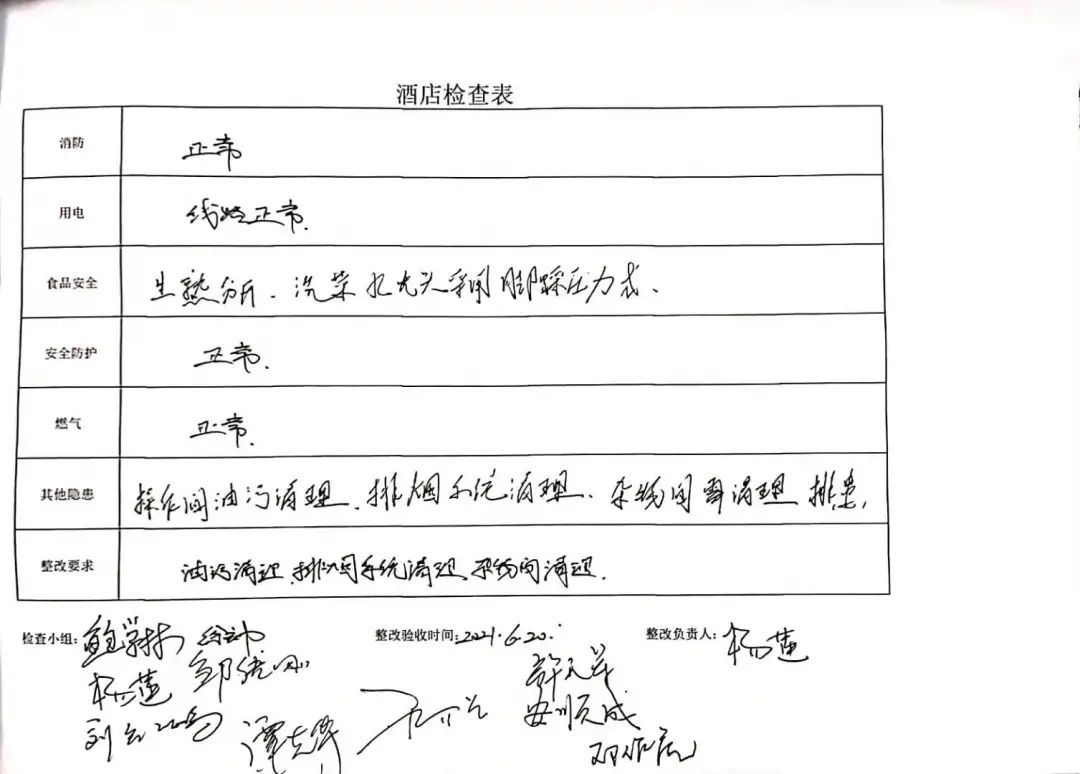 酒店检查表
消防 正常
用电 线路正常.
食品安全 生熟分开、洗菜水龙头采用脚踩压力式、
安全防护 正常.
燃气 正常.
其他隐患 操作间油污清理、排烟系统清理、杂物间需清理 排患,
整改要求 油污清理、排烟系统清理、杂物间清理.
检查小组: 整改验收时间:2021.6.20. 整改负责人:杨莲
杨莲